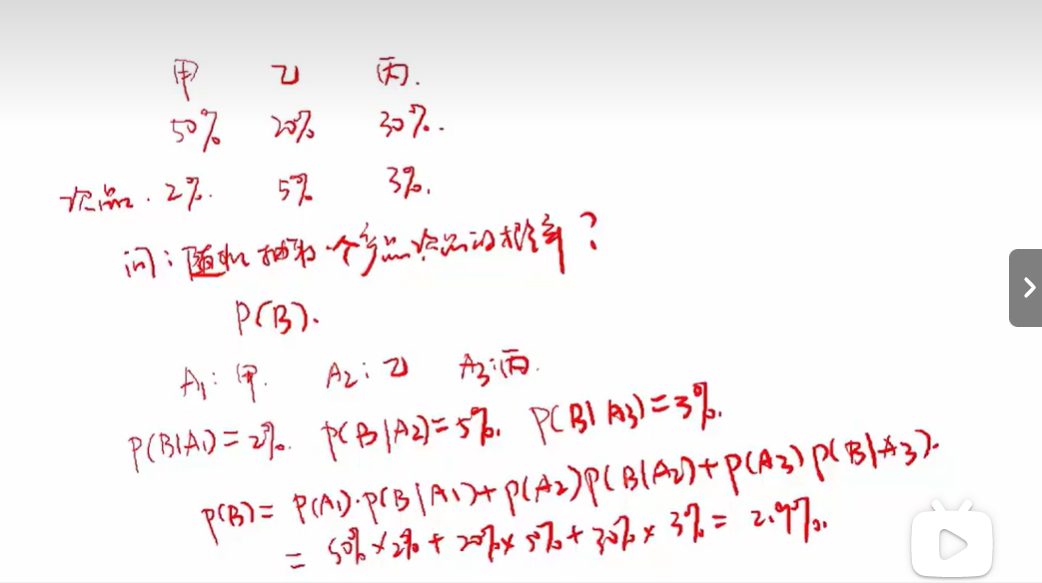 甲 乙 丙.
50% 20% 30%.
次品. 2%. 5% 3%.
问: 随机抽取一个产品次品的概率?
P(B).
A₁: 甲. A₂: 乙 A₃: 丙.
P(B|A₁)=2%. P(B|A₂)=5%. P(B|A₃)=3%.
P(B)= P(A₁)·P(B|A₁)+P(A₂)P(B|A₂)+P(A₃)P(B|A₃).
= 50%×2%+20%×5%+30%×3%= 2.9%.